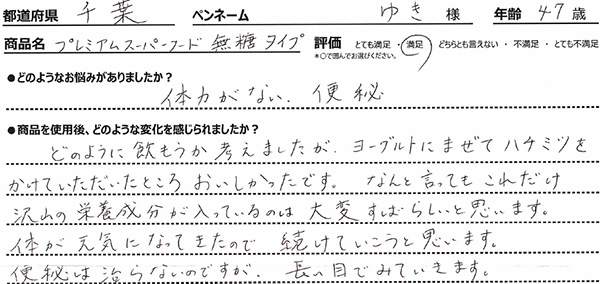 都道府県 千葉 ペンネーム ゆき 様 年齢 47 歳
商品名 プレミアムスーパーフード 無糖タイプ 評価 とても満足 ・ 満足 ・ どちらとも言えない ・ 不満足 ・ とても不満足
*○で囲んでお選びください。
●どのようなお悩みがありましたか?
体力がない、便秘
●商品を使用後、どのような変化を感じられましたか?
どのように飲もうか考えましたが、ヨーグルトにまぜてハチミツを
かけていただいたところおいしかったです。なんと言ってもこれだけ
沢山の栄養成分が入っているのは大変すばらしいと思います。
体が元気になってきたので続けていこうと思います。
便秘は治らないのですが、長い目でみていきます。